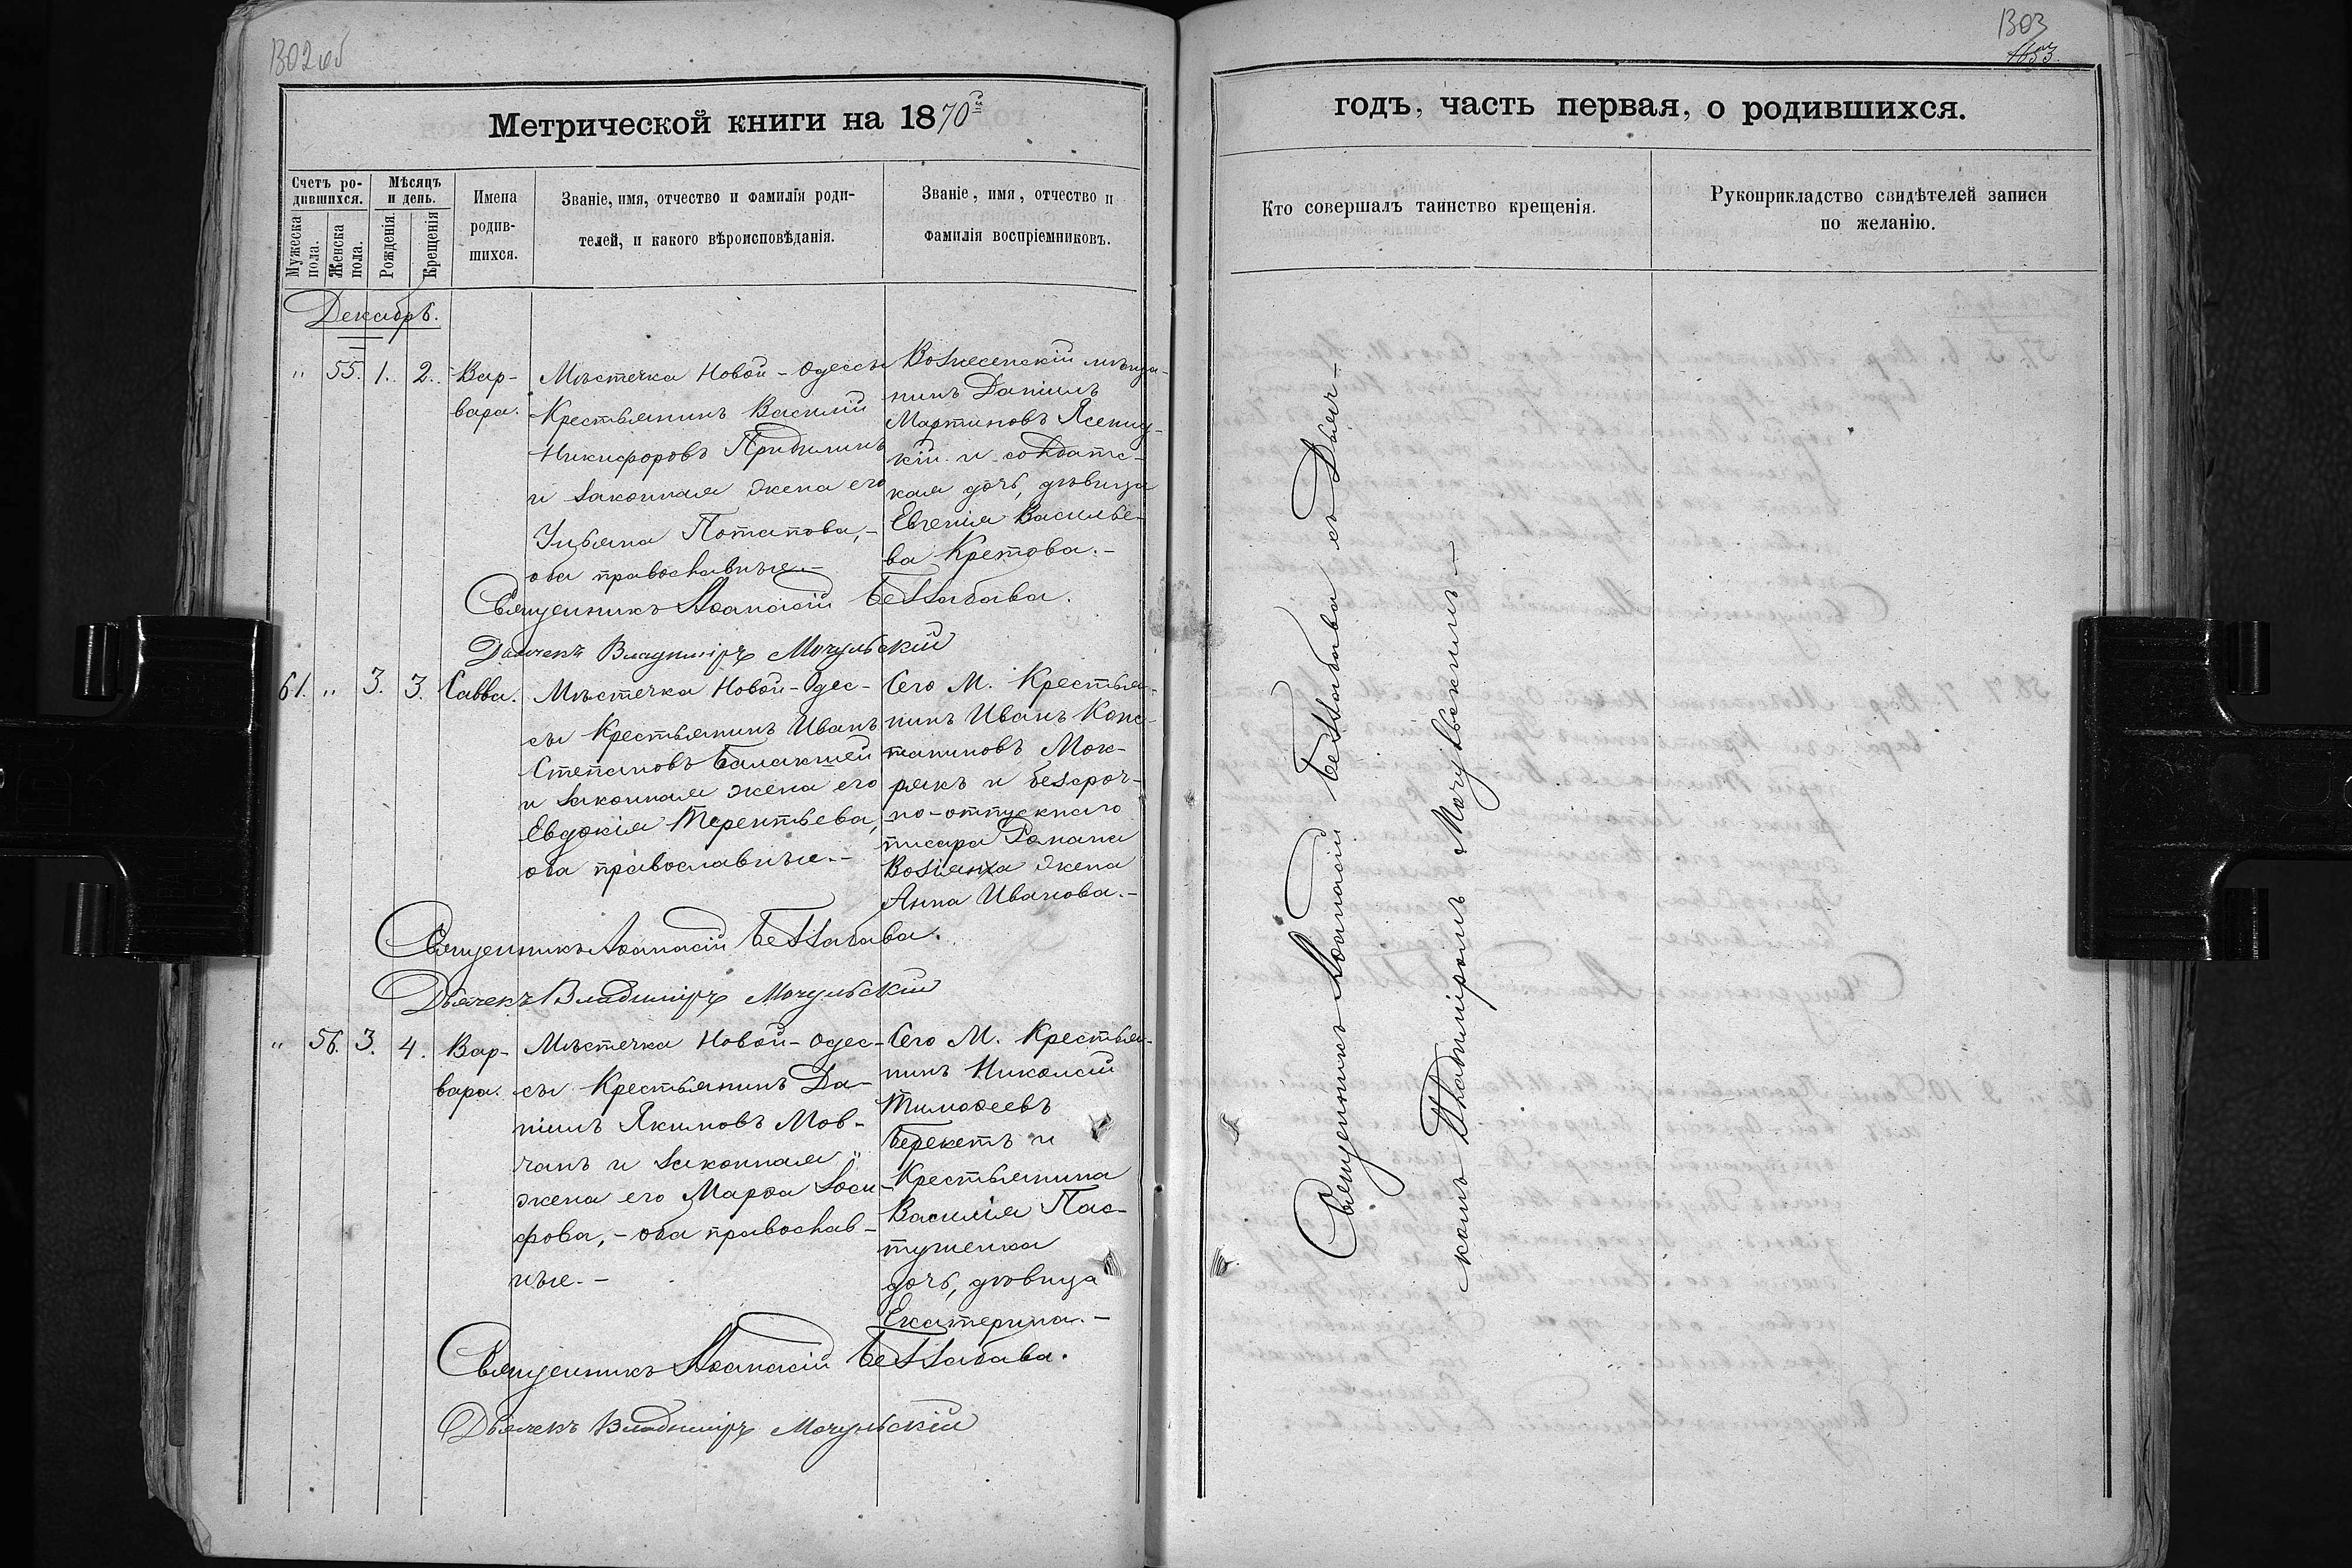 1302об
Метрической книги на 1870й
Счетъ ро-
дившихся.
Мужеска
пола.
Женска
пола.
Мѣсяцъ
и день.
Рожденія.
Крещенія
Имена
родив-
шихся.
Званіе, имя, отчество и фамилія роди-
телей, и какого вѣроисповѣданія.
Званіе, имя, отчество и
фамилія воспріемниковъ.
Декабрь.
" 55. 1. 2. Вар-
вара.
Мѣстечка Новой-Одессы
Крестьянинъ Василій
Никифоровъ
и законная жена его
Ульяна Потапова,-
оба православные.-
Вознесенскій мѣща-
нинъ Даніилъ
Мартиновъ Ясениц-
кій и солдатс-
кая дочь, дѣвица
Евгенія Василье-
ва Кретова.-
Священникъ Аѳанасій Беззабава.
Дьячекъ Владиміръ Мочульскій
61. " 3. 3. Савва.
Мѣстечка Новой-Одес-
сы Крестьянинъ Иванъ
Степановъ Балакшей
и законная жена его
Евдокія Терентьева,
оба православные.-
Сего М. Крестья-
нинъ Иванъ Конс-
тантиновъ Мок-
рякъ и безсроч-
но-отпускнаго
писара Романа
Возіяна жена
Анна Иванова.-
Священникъ Аѳанасій Беззабава.
Дьячекъ Владиміръ Мочульскій
" 56. 3. 4. Вар-
вара.
Мѣстечка Новой-Одес-
сы Крестьянинъ Да-
ніилъ Якимовъ Мов-
чанъ и законная
жена его Марѳа Іоси-
фова,- оба православ-
ные.-
Сего М. Крестья-
нинъ Николай
Тимоѳеевъ
Берекетъ и
Крестьянина
Василія Пас-
тушенка
дочь, дѣвица
Екатерина.-
Священникъ Аѳанасій Беззабава.
Дьячекъ Владиміръ Мочульскій
1303
1653
годъ, часть первая, о родившихся.
Кто совершалъ таинство крещенія.
Рукоприкладство свидѣтелей записи
по желанію.
Священникъ Аѳанасій Беззабава съ Дьяч-
комъ Владиміромъ Мочульскимъ-